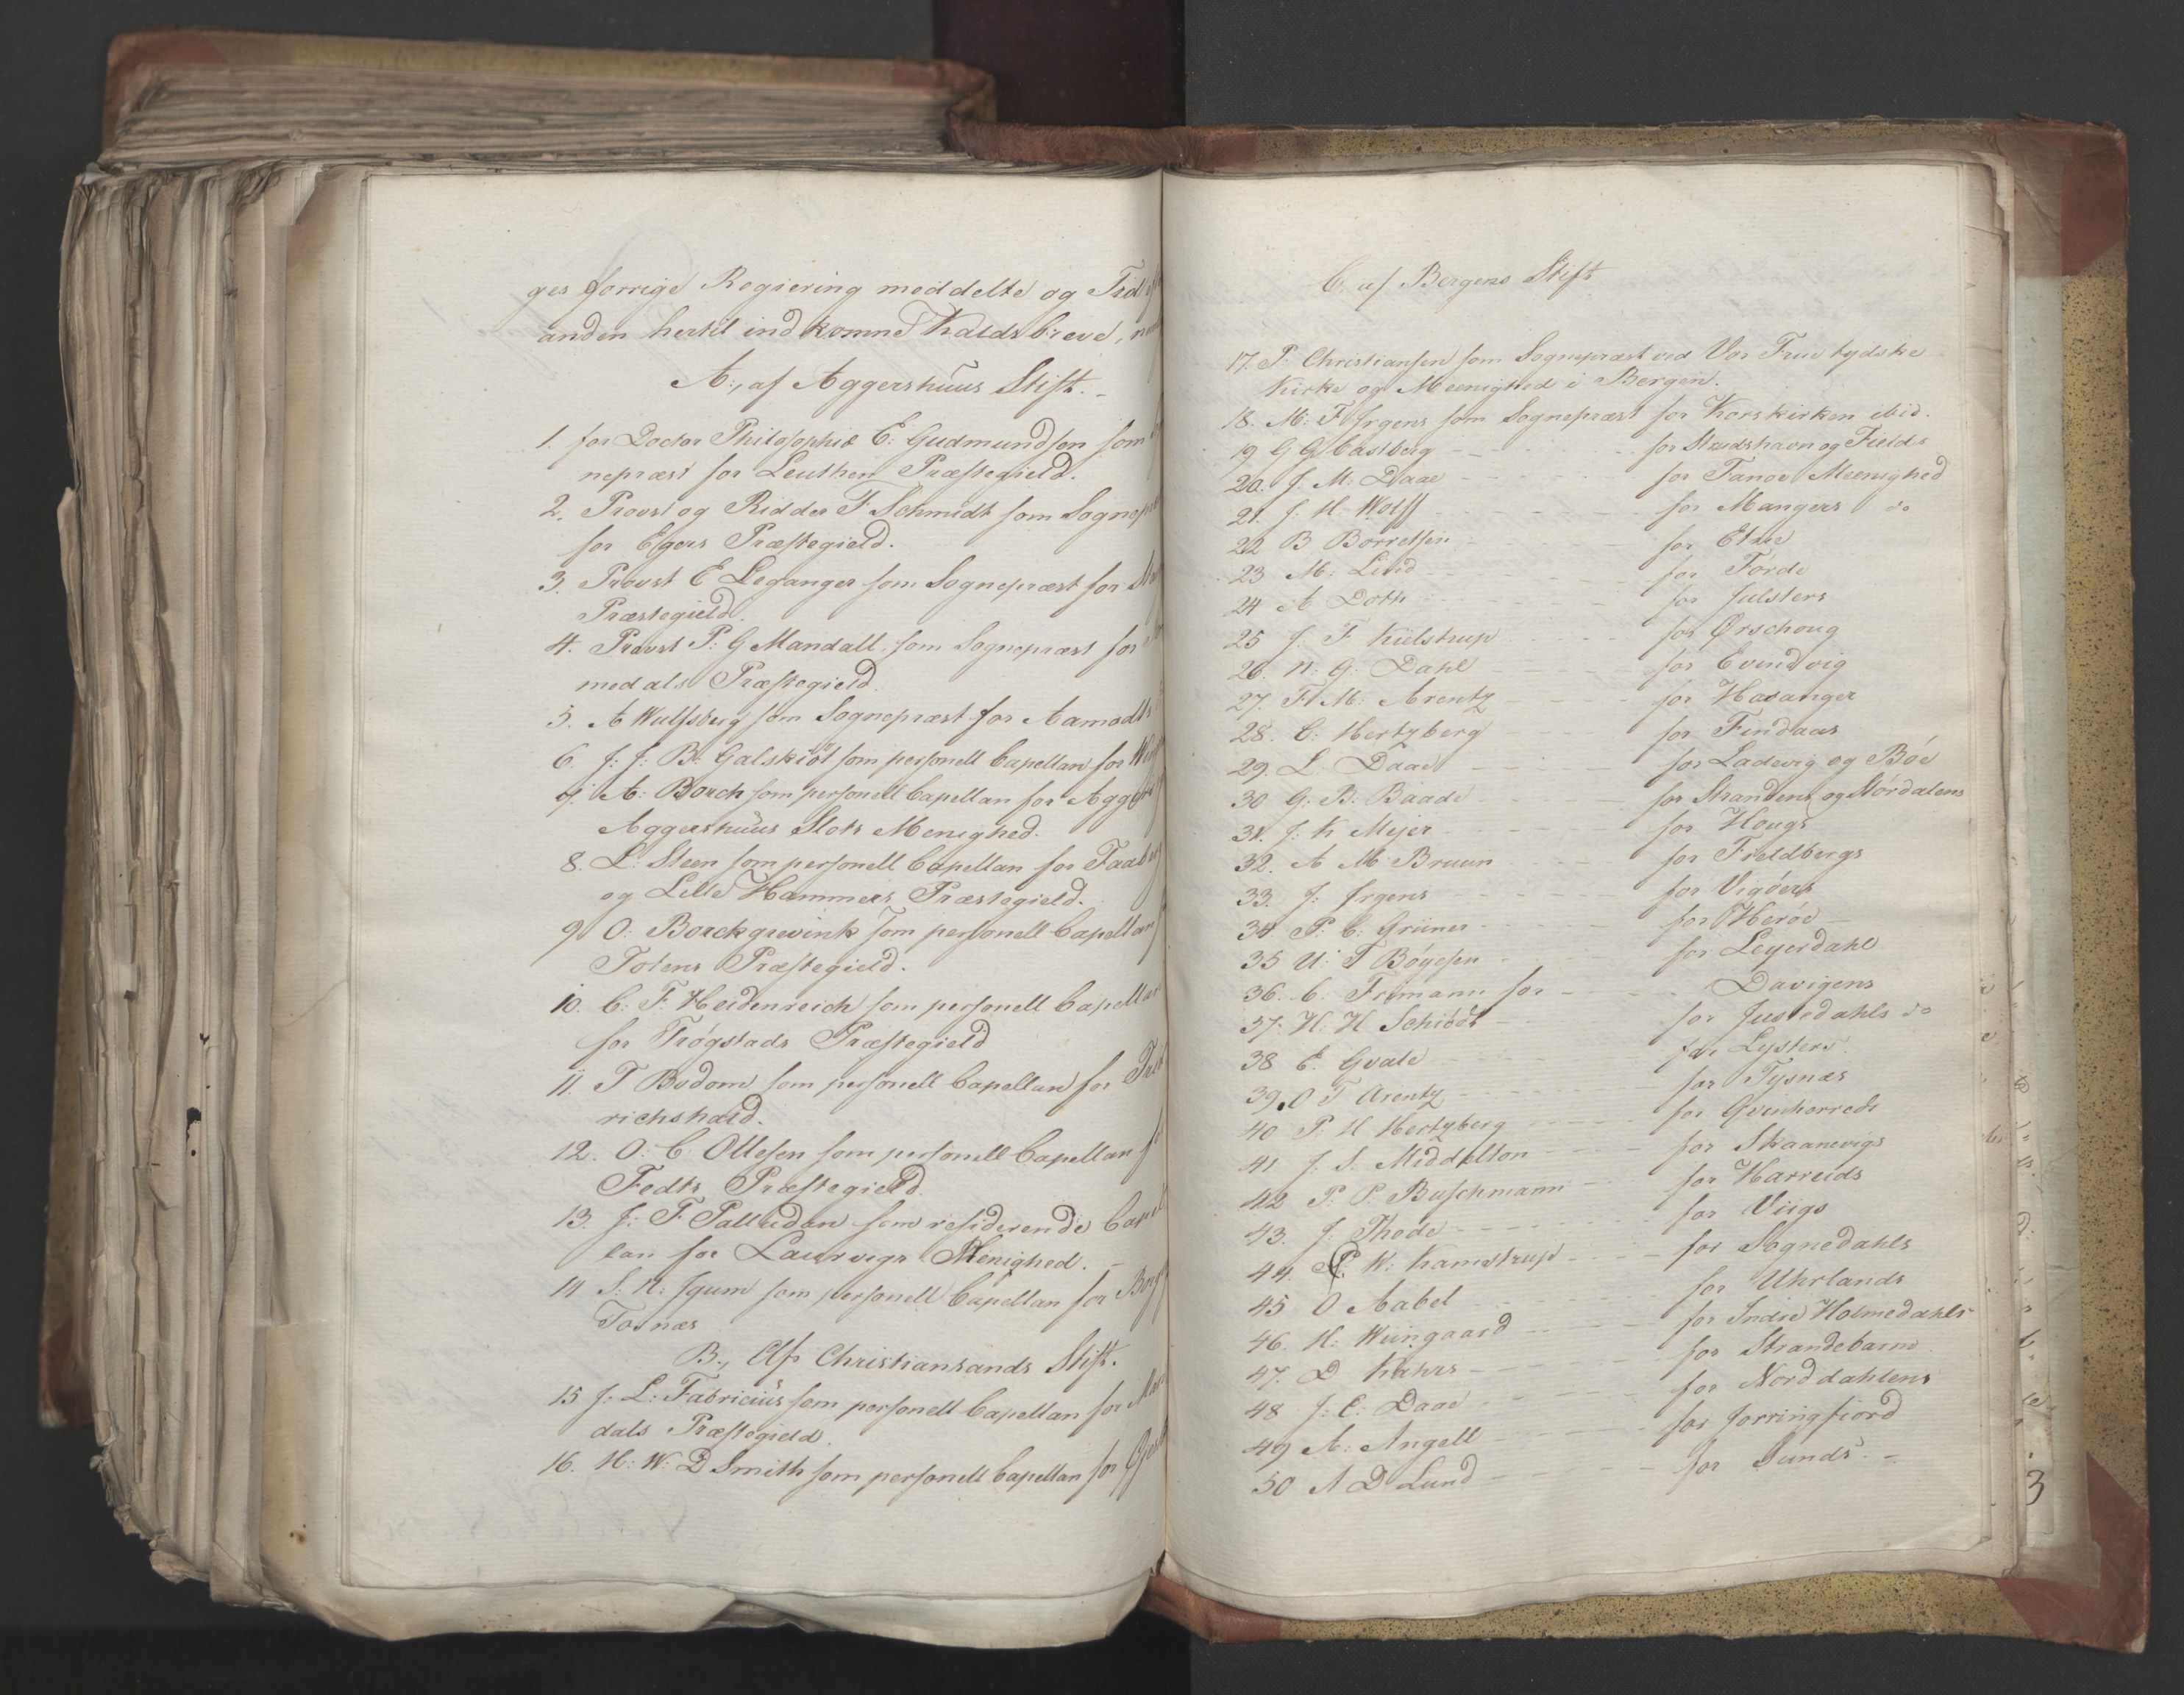 ges forrige Regiering meddelte og Tid
anden hertil indkomne Kaldsbreve,
A., af Aggershuus Stift.
1. for Doctor Philosophiæ E: Gudmundsen som
nepræst for Leuthen Præstegield.
2. Provst og Ridder F Schmidt som Sognepræ
for Egers Præstegield.
3. Provst E Leganger som Sognepræst for
Præstegield.
4. Provst P: G Mandall som Sognepræst for
medals Præstegield.
5. A Wulfsberg som Sognepræst for Aamodts
6. J: J: B: Galskiöt som personell Capellan for
7. A: Borch som personell Capellan for Agger
Aggershuus Slots Menighed.
8. L: Steen som personell Capellan for Faaberg
og Lille Hammers Præstegield.
9 O: Borckgrevink som personell Capellan
Totens Præstegield.
10. C: F: Heidenreich som personell Capellan
for Trøgstads Præstegield
11. T Bodom som personell Capellan for Fred
richshald.
12. O: C Ottesen som personell Capellan for
Fedts Præstegield
13. J: F Palludan som residerende Capel
lan for Laurvigs Menighed.
14 S: N: Igum som personell Capellan for Borge
Tornæs
B., Af Christiansands Stift.
15 J: L: Fabricius som personell Capellan for Man
dals Præstegield.
16. H: W: D Smith som personell Capellan for
C. af Bergens Stift
17. P: Christiansen som Sognepræst ved Vor Frue tydske
Kirke og Meenighed i Bergen.
18. M: F Irgens som Sognepræst for Korskirken ibid.
19 G G Castberg for Studshavn og Fields
20. J. M: Daae for Fanøe Meenighed
21. J. H. Wolff for Mangers do
22 B Borretzen for Etne
23 M: Lind for Førde
24 A Doth for Julsters
25 J. F. Kielstrup for Ørschoug
26. N: G: Dahl for Evindvig
27. F: M: Arentz for Havanger
28. C: Hertzberg for Findaas
29. L: Daae for Ladevig og Bøe
30 G: B: Baade for Strandens og Stördalens
31. J: K Mejer for Hougs
32. A M Bruun for Fieldbergs
33. J: Irgens for Vigöers
34 P: C: Grüner for Herøe
35 U: F Bøyesen for Leyerdahl
36. C: Frimann for Davigens
37. H: H Schiödt for Justedahls do
38 E. Gvale for Lysters
39. O T Arentz for Tysnæs
40 P: H Hertzberg for Gvinherreds
41 J. S. Middelton for Skaanevigs
42 P. P. Buschmann for Harreids
43. J: Thode for Viigs
44. C: W: Kamstrup for Sognedahls
45 O Aabel for Uhrlands
46. H: Wiingaard for Indre Holmedahls
47. D Kahrs for Strandebarm
48 J: C: Daae for Norddahlens
49 A: Angell for Jørringfiord
50 A D Lund for Sunds.
3